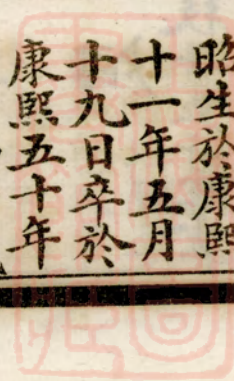 昭生於康熙
十一年五月
十九日卒於
康熙五十年